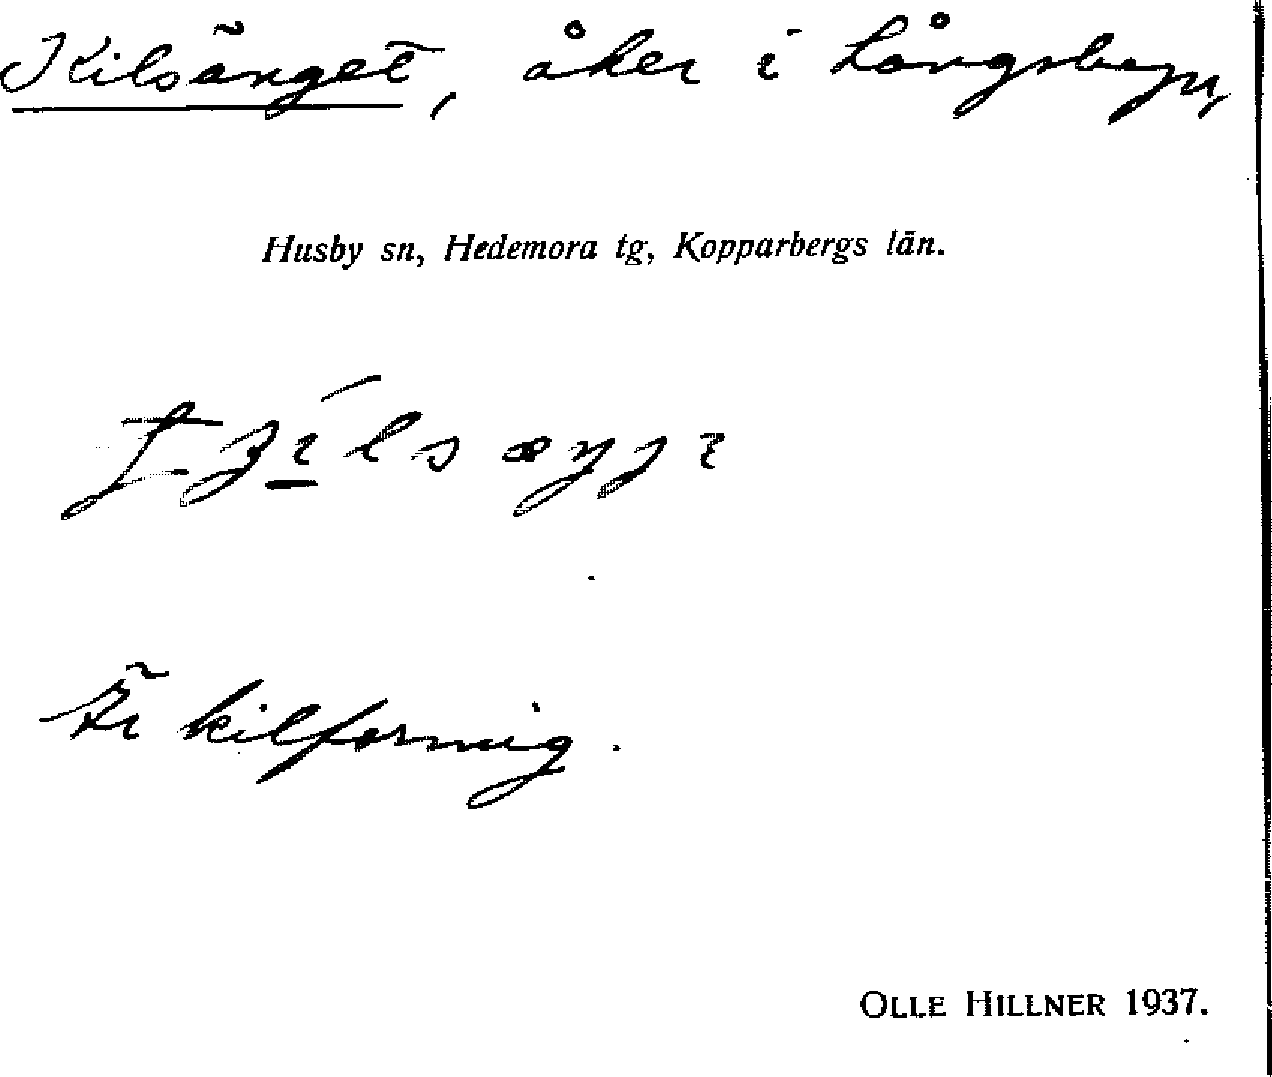 Kilsänget, åker i Långsbyn,
Husby sn, Hedemora tg, Kopparbergs län.
Är kilformig.
OLLE HILLNER 1937.